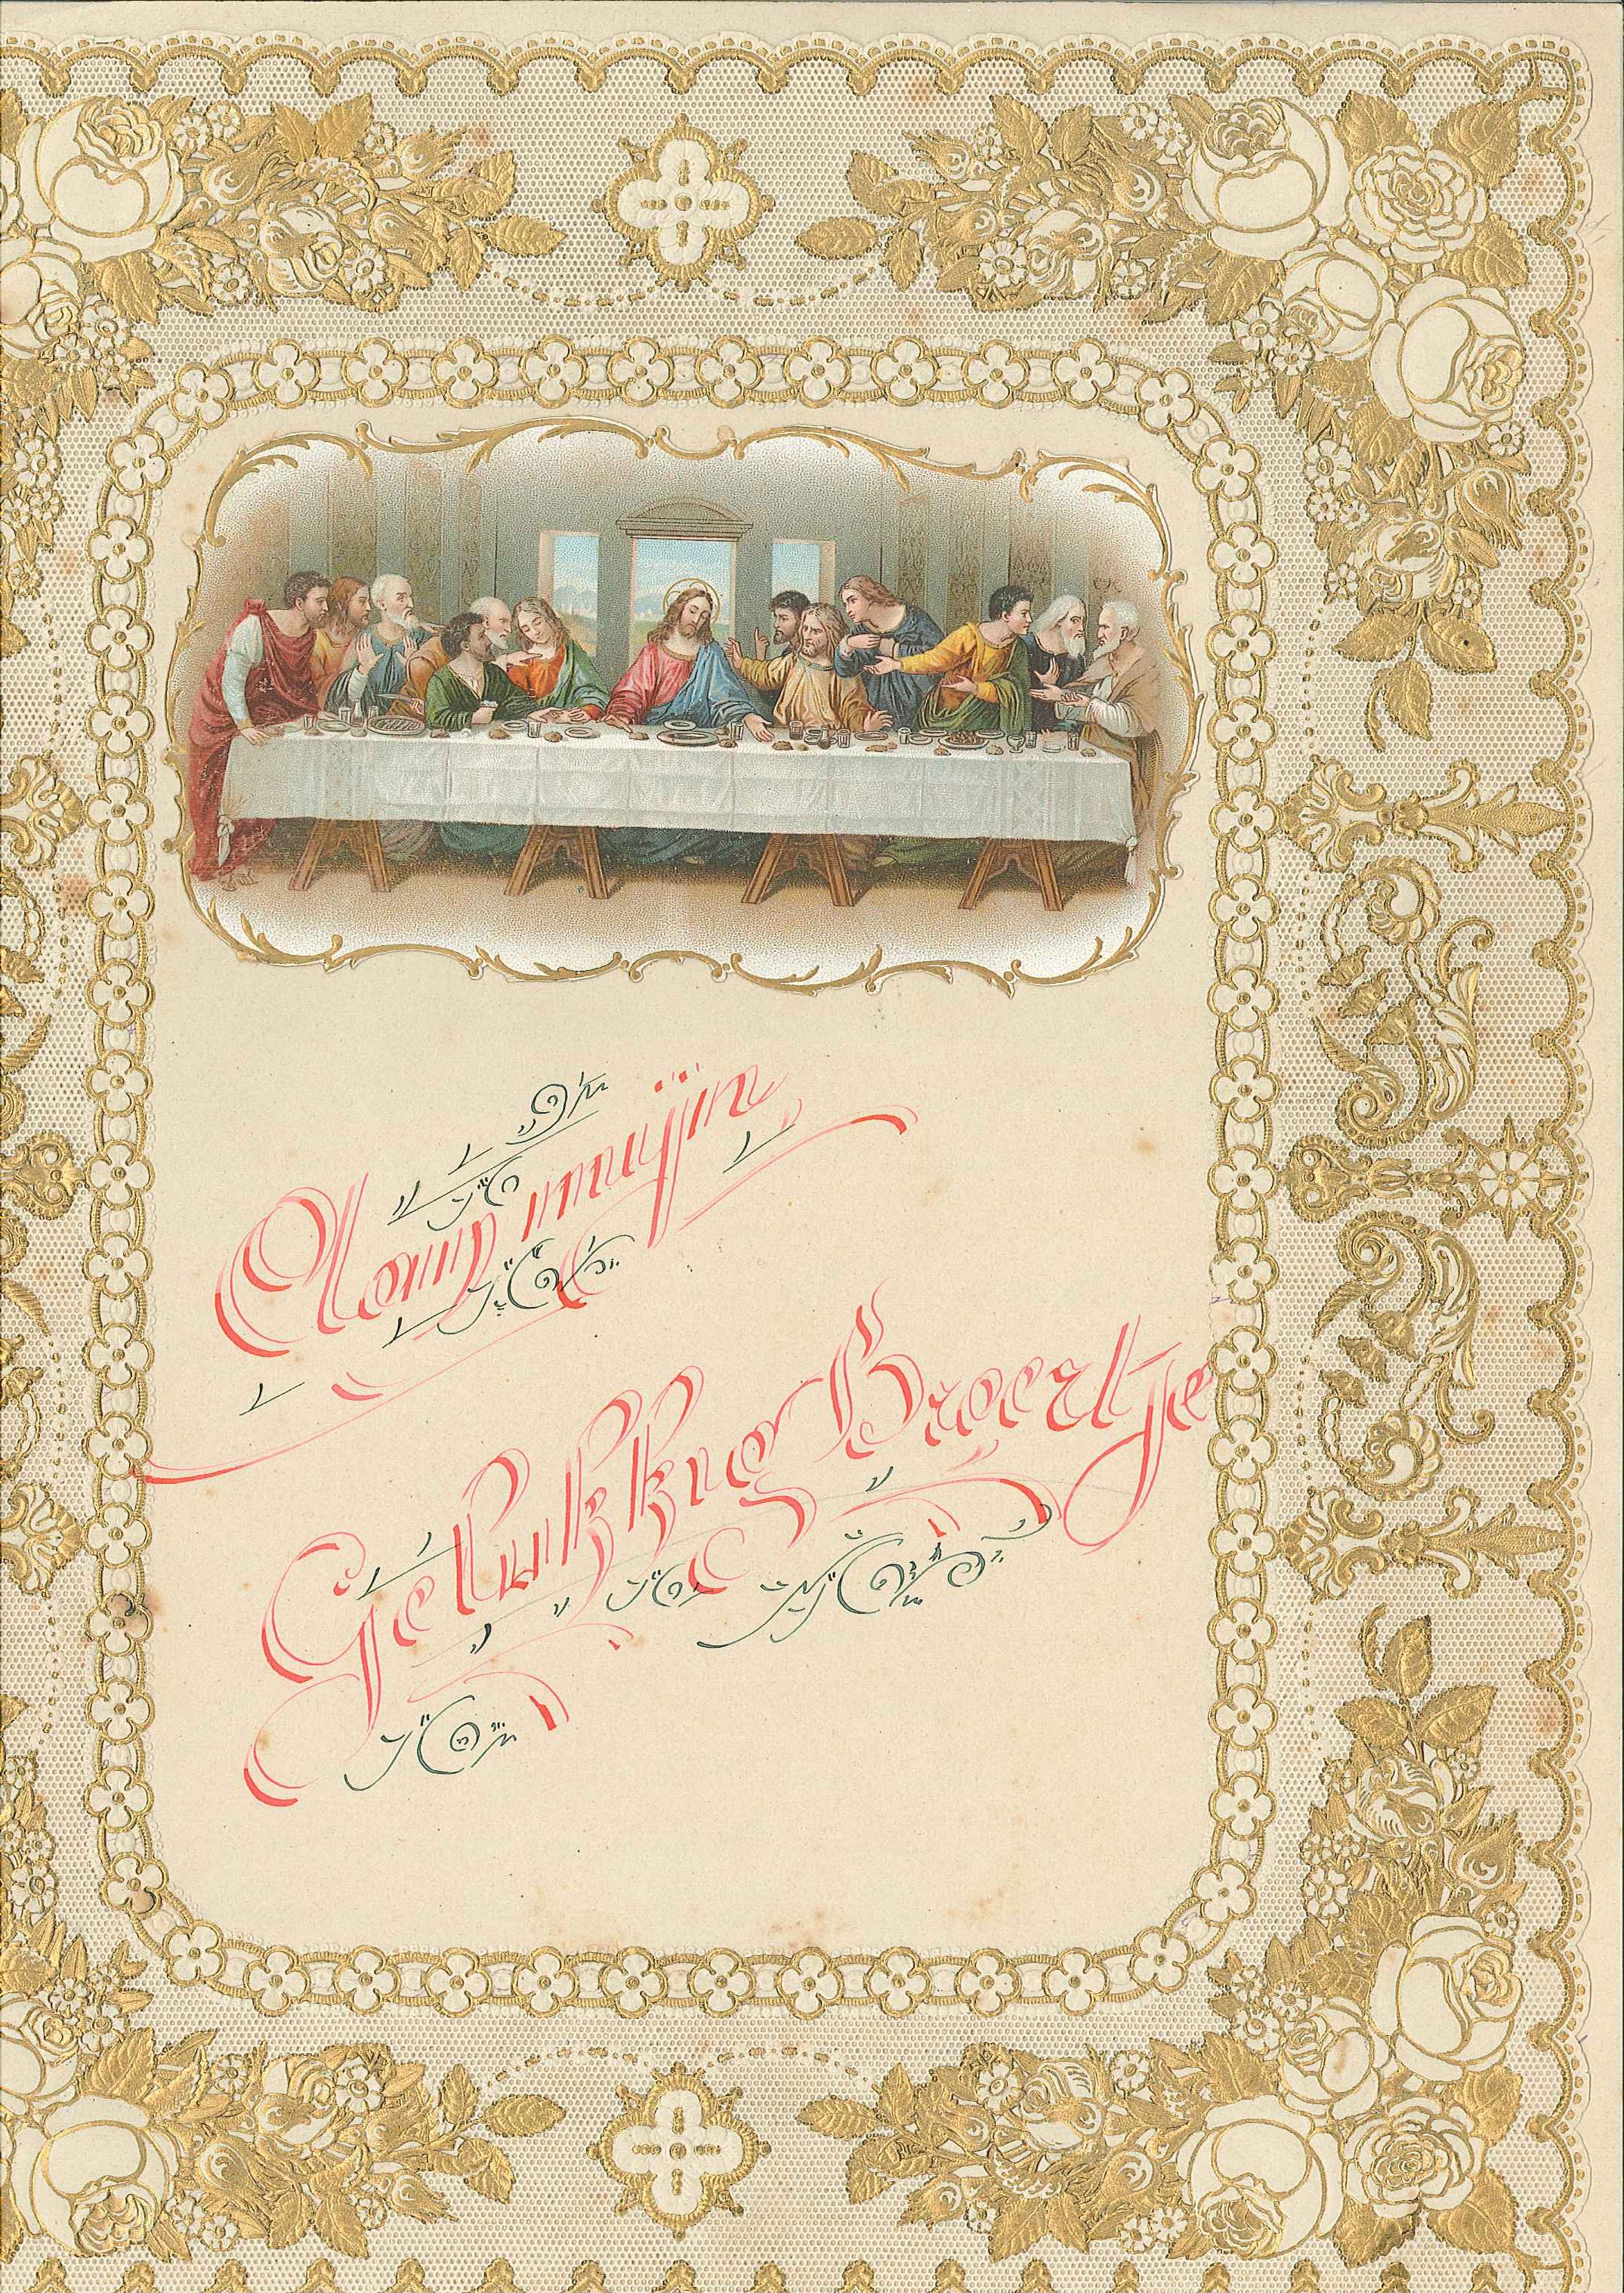 Aan mijn
Gelukkig Broertje